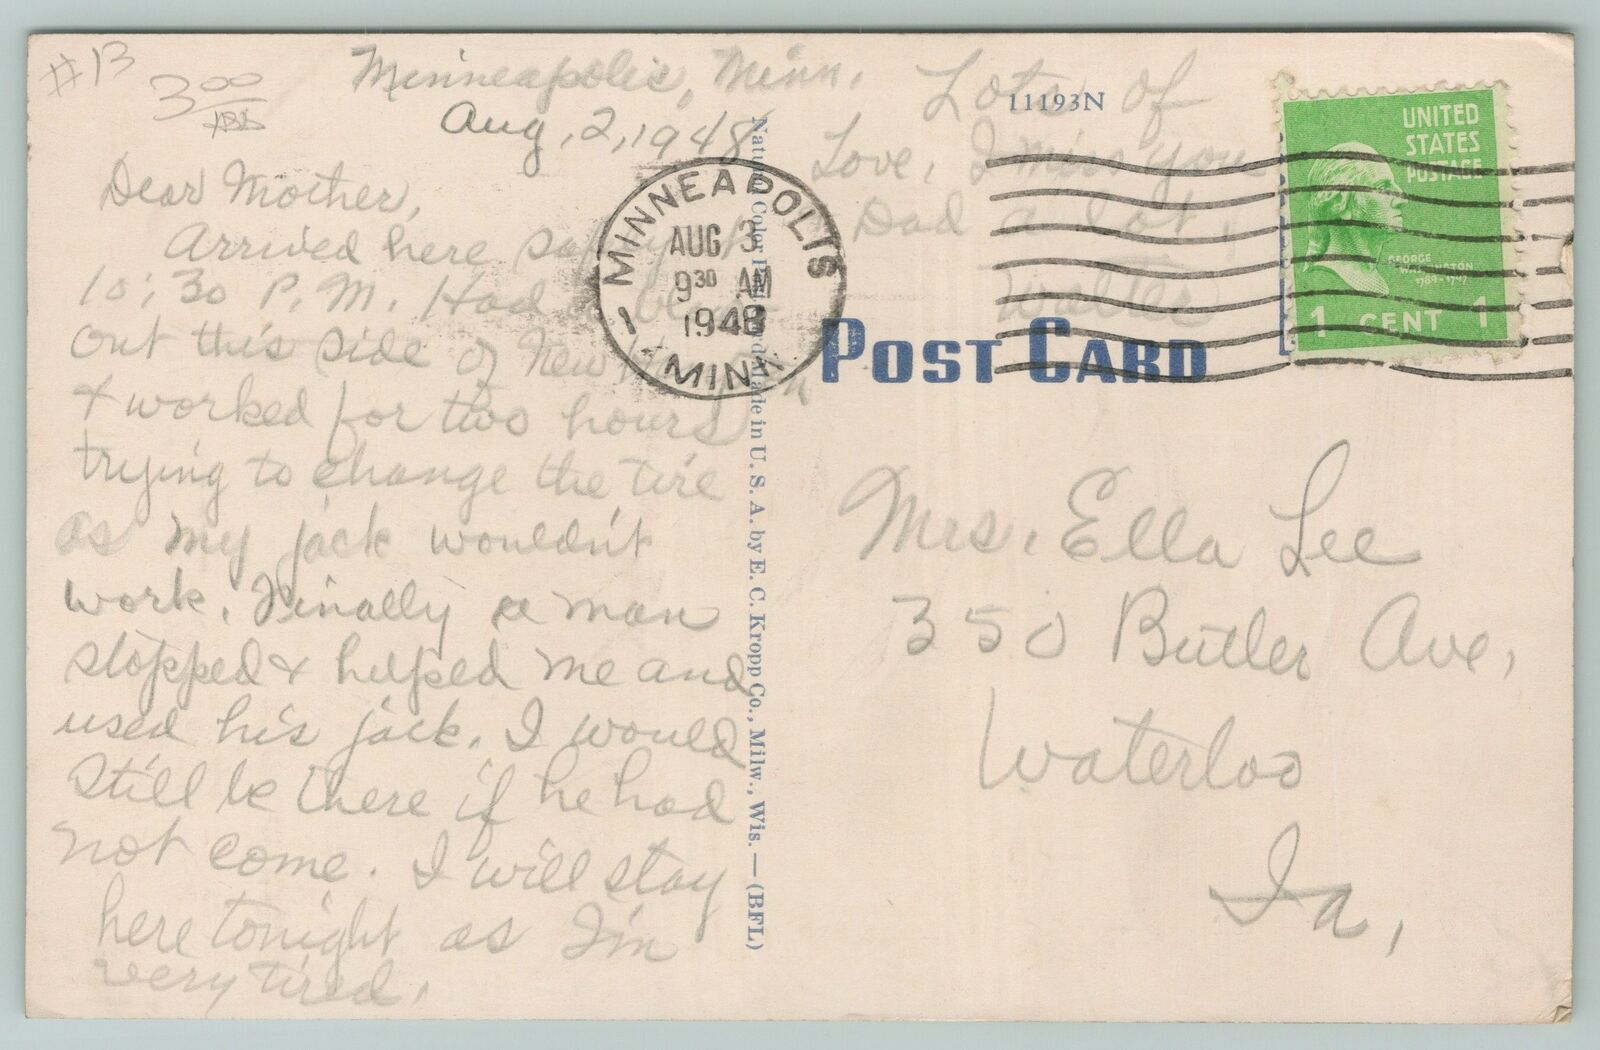 #13
3.00
Minneapolis, Minn.
Aug, 2, 1948
Dear Mother,
Arrived here safely
10:30 P. M. Had a blow
out this side of New
& worked for two hours
trying to change the tire
as my jack wouldn't
work. Finally a man
stopped & helped me and
used his jack. I would
still be there if he had
not come. I will stay
here tonight as I'm
very tired.
Lots of
Love, I miss you
& Dad a lot.
Walter
11193N
MINNEAPOLIS
AUG 3
9 30 AM
1948
1 MINN.
Natural Color Post Card Made in U. S. A. by E. C. Kropp Co., Milw., Wis. — (BFL)
POST CARD
UNITED
STATES
POSTAGE
GEORGE
WASHINGTON
1789-1797
1 CENT 1
Mrs. Ella Lee
350 Butler Ave,
Waterloo
Ia,